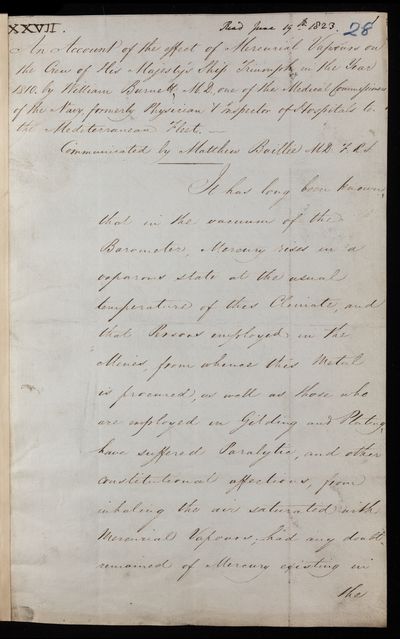 XXVII. Read June 19th 1823. 28
An Account of the effect of Mercurial Vapours on
the Crew of His Majesty's Ship Triumph, in the Year
1810. by William Burnett, M.D. one of the Medical Commissioners
of the Navy, formerly Physician & Inspector of Hospitals to
the Mediterranean Fleet.
Communicated by Matthew Baillie M.D. F.R.S
It has long been known,
that in the vacuum of the
Barometer, Mercury rises in a
vaporous state at the usual
temperature of this Climate, and
that Persons employed in the
Mines, from whence this Metal
is procured, as well as those who
are employed in Gilding and Plating,
have suffered Paralytic, and other
constitutional affections, from
inhaling the air saturated with
Mercurial Vapours; had any doubt
remained of Mercury existing in
the